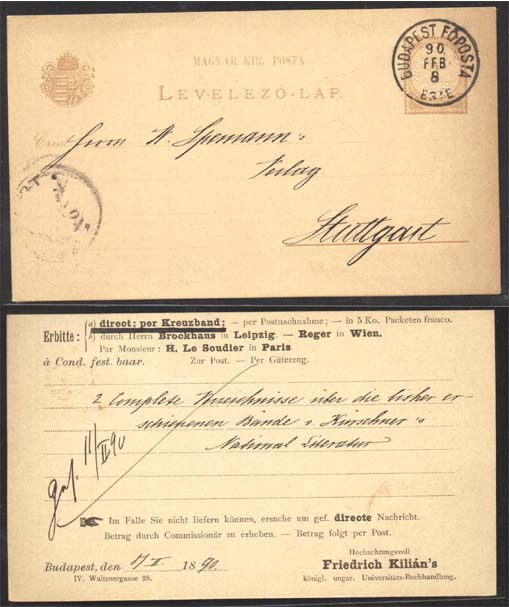 MAGYAR KIR. POSTA.
LEVELEZŐ-LAP.
BUDAPEST FŐPOSTA
90
FEB.
8
ESTE
Czím
Herrn W. Spemann
Verlag
Stuttgart
Erbitte:
a) direct; per Kreuzband; — per Postnachnahme; — in 5 Ko. Packeten franco.
b) durch Herrn Brockhaus in Leipzig. — Reger in Wien.
Par Monsieur: H. Le Soudier in Paris.
à Cond. fest. baar. Zur Post. — Per Güterzug.
2 Complete Verzeichnisse über die bisher er-
schienenen Bände v. Kürschner's
National Literatur
11/II 90
Im Falle Sie nicht liefern können, ersuche um gef. directe Nachricht.
Betrag durch Commissionär zu erheben. — Betrag folgt per Post.
Hochachtungsvoll
Budapest, den 1890. Friedrich Kilián's
IV. Waitznergasse 28. königl. ungar. Universitäts-Buchhandlung.